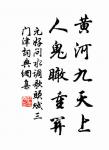 黄河九天上
人鬼瞰重關
元好问水调歌头赋三
门津詞典網集